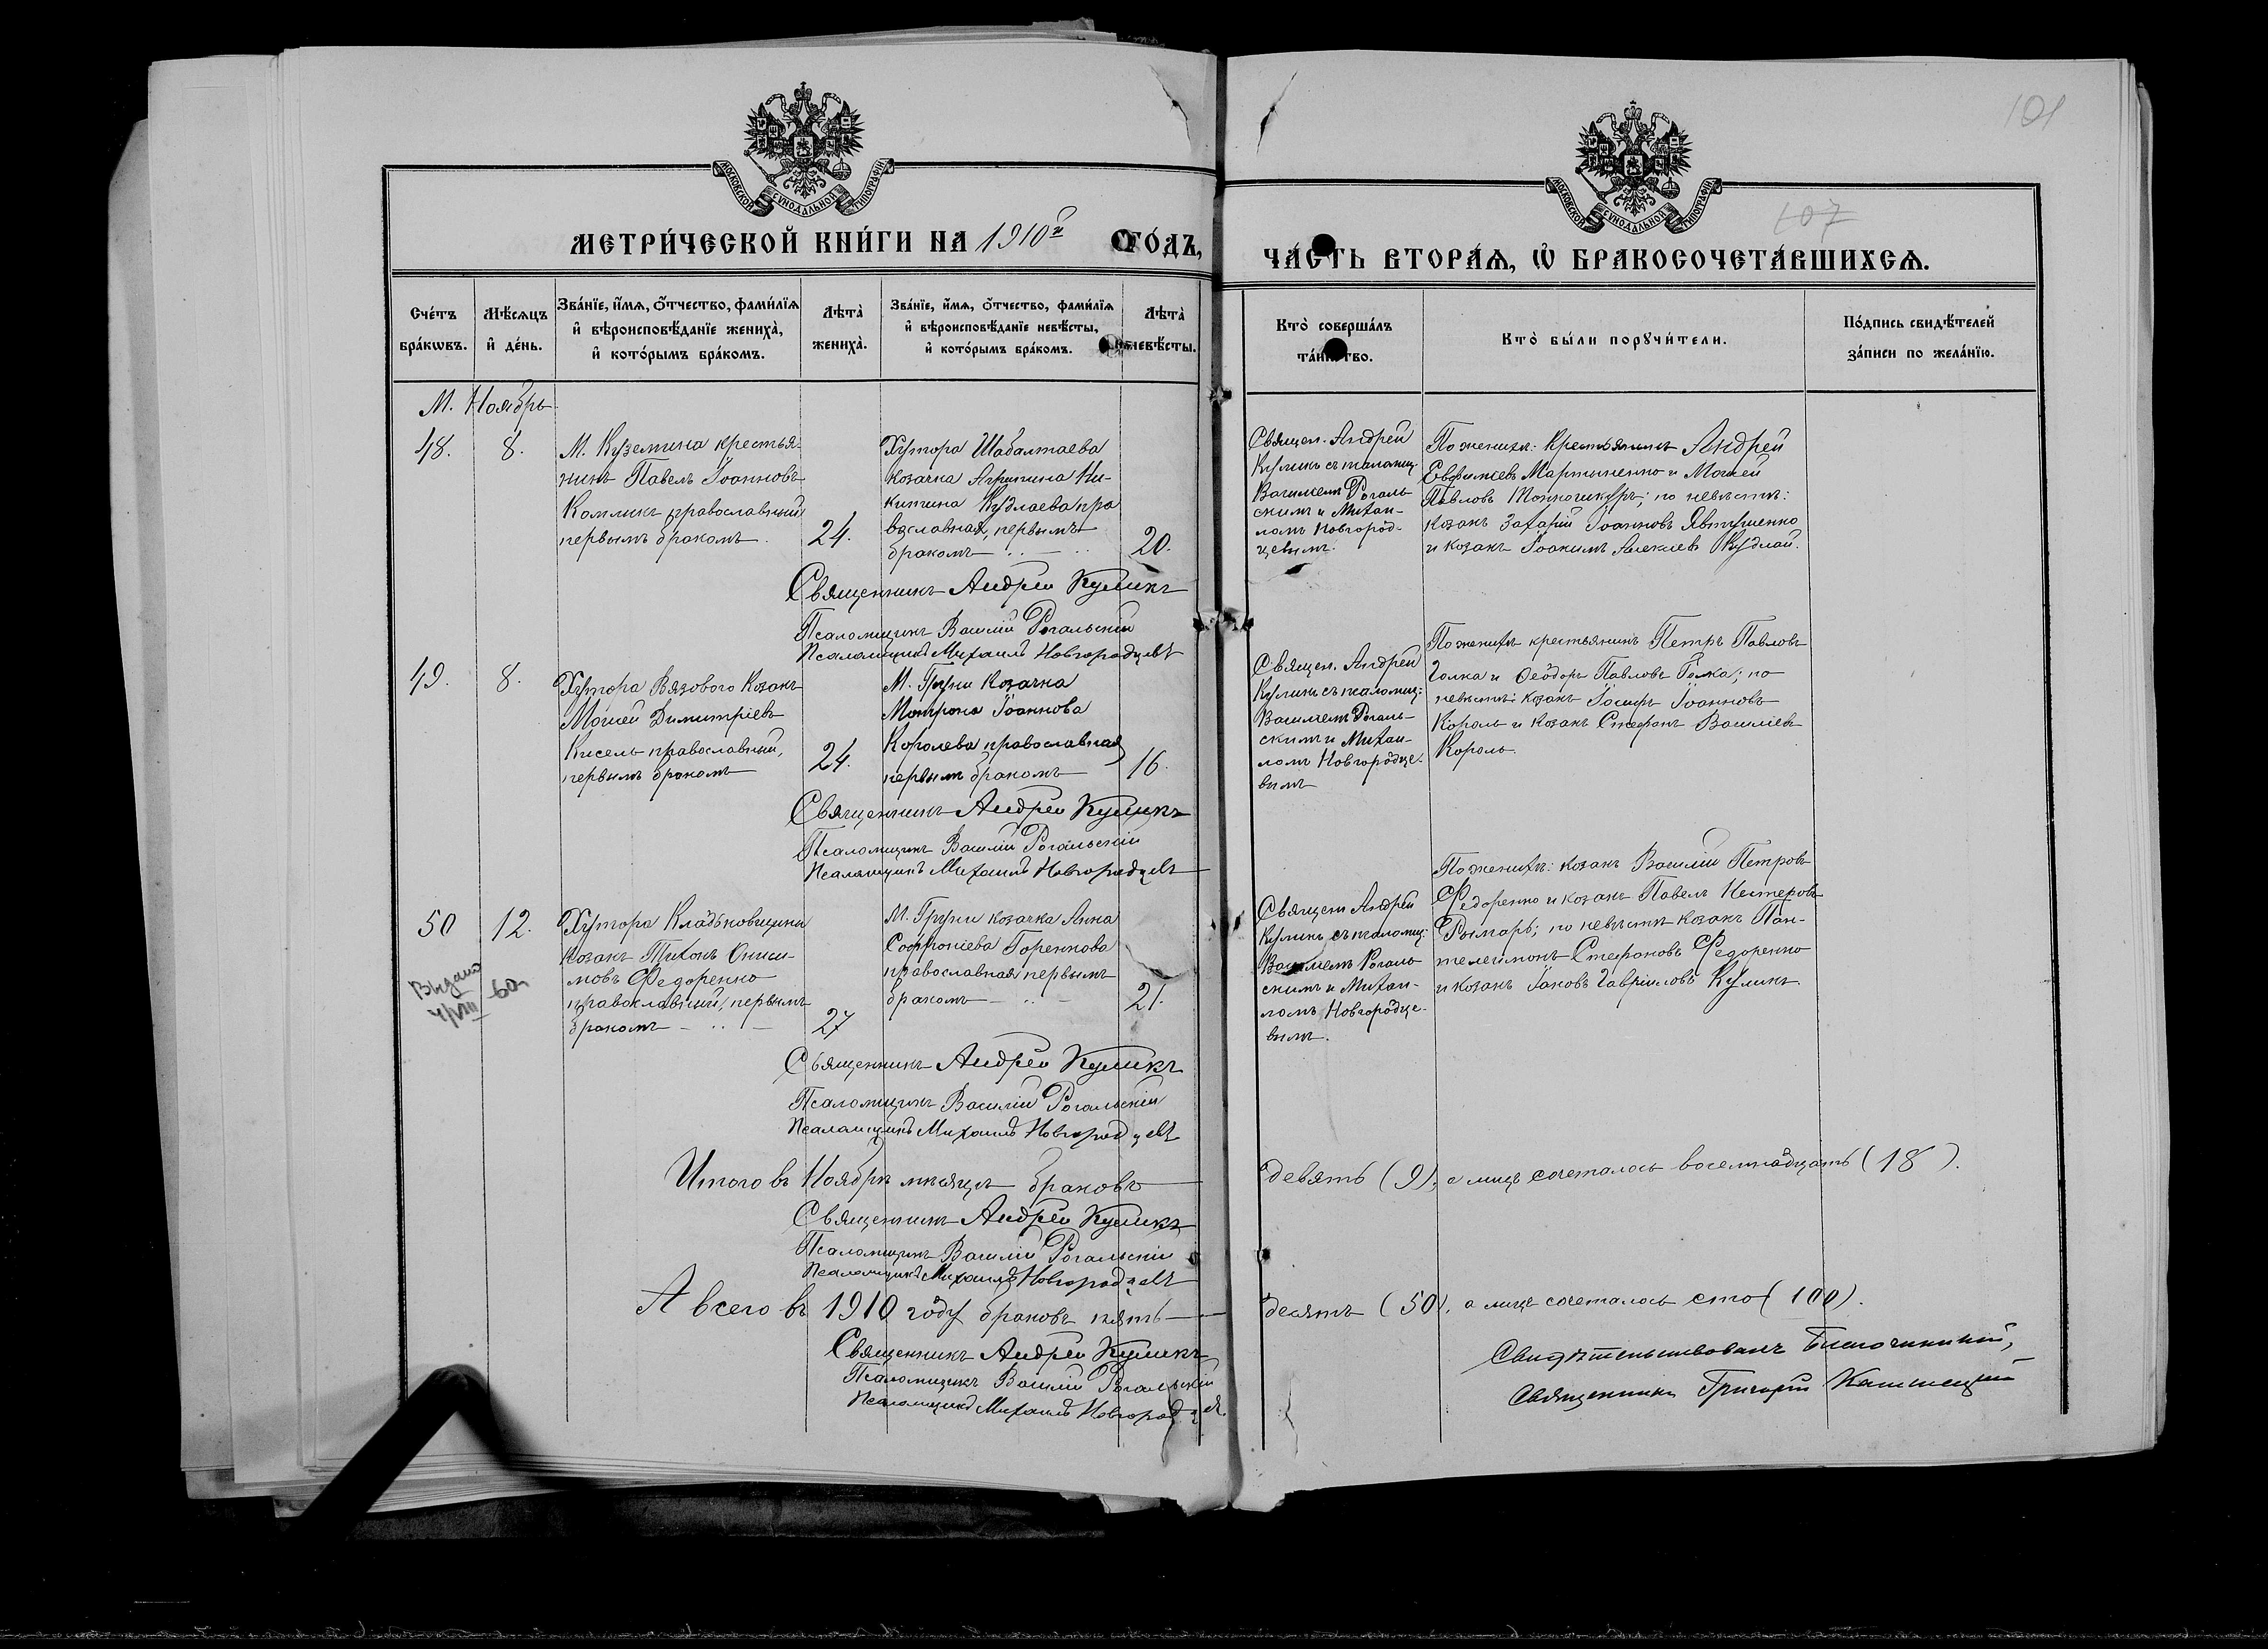 101
107
МОСКОВСКОЙ СѴНОДАЛЬНОЙ ТИПОГРАФІИ
МОСКОВСКОЙ СѴНОДАЛЬНОЙ ТИПОГРАФІИ
МЕТРИ́ЧЕСКОЙ КНИ́ГИ НА 1910й ГО́ДЪ,
ЧА́СТЬ ВТОРА́Ѧ, Ѡ҆ БРАКОСОЧЕТА́ВШИХСѦ.
Сче́тъ бра́кѡвъ.
Мѣ́сѧцъ и҆ де́нь.
Зва́нїе, и҆́мѧ, ѻ҆́тчество, фами́лїѧ
и҆ вѣроисповѣ́данїе жениха̀,
и҆ кото́рымъ бра́комъ.
Лѣта̀ жениха̀.
Зва́нїе, и҆́мѧ, ѻ҆́тчество, фами́лїѧ
и҆ вѣроисповѣ́данїе невѣ́сты,
и҆ кото́рымъ бра́комъ.
Лѣта̀ невѣ́сты.
Кто̀ соверша́лъ
та́инство.
Кто̀ бы́ли порꙋчи́тели.
По́дпись свидѣ́телей
за́писи по жела́нїю.
М. Ноябрь
48.
8.
М. Куземина крестья-
нинъ Павелъ Іоанновъ
Комликъ православный
первымъ бракомъ.
24.
Хутора Шабалтаева
козачка Агрипина Ни-
китина Кудлаева пра
вославная, первымъ
бракомъ
20.
Священ. Андрей
Куликъ съ псаломщ.
Василіемъ Рогаль-
скимъ и Михаи-
ломъ Новгород-
цевымъ.
По женихѣ: крестьянинъ Андрей
Евфиміевъ Мартыненко и Моисей
Павловъ; по невѣстѣ:
козакъ Захарій Іоанновъ Явтушенко
и козакъ Іоакимъ Алексіевъ Кудлай.
Священникъ Андрей Куликъ
Псаломщикъ Василій Рогальскій
Псаломщикъ Михаилъ Новгородцевъ
49.
8.
Хутора Вязового козакъ
Моисей Димитріевъ
Кисель православный,
первымъ бракомъ
24.
М. Груни козачка
Матрона Іоаннова
Королева православная
первымъ бракомъ
16.
Священ. Андрей
Куликъ съ псаломщ:
Василіемъ Рогаль-
скимъ и Михаи-
ломъ Новгородце-
вымъ
По женихѣ крестьянинъ Петръ Павловъ
Голка и Ѳеодоръ Павловъ Голка; по
невѣстѣ: козакъ Іосифъ Іоанновъ
Король и козакъ Стефанъ Василіевъ
Король.
Священникъ Андрей Куликъ
Псаломщикъ Василій Рогальскій
Псаломщикъ Михаилъ Новгородцевъ
50
12.
Выдано
4/VIII 60
Хутора Кладьковщины
козакъ Тихонъ Ониси-
мовъ Федоренко
православный, первымъ
бракомъ
27
М. Груни козачка Анна
Софроніева Горенкова
православная первымъ
бракомъ
21.
Священ Андрей
Куликъ съ псаломщ:
Василіемъ Рогаль
скимъ и Михаи-
ломъ Новгородце-
вымъ.
По женихѣ: козакъ Василій Петровъ
Федоренко и козакъ Павелъ Нестеровъ
Рымарь; по невѣстѣ козакъ Пан-
телеимонъ Стефановъ Федоренко
и козакъ Іаковъ Гавріиловъ Куликъ.
Священникъ Андрей Куликъ
Псаломщикъ Василій Рогальскій
Псаломщикъ Михаилъ Новгородцевъ
Итого въ Ноябрѣ мѣсяцѣ браковъ девять (9), а лицъ сочеталось восемнадцать (18).
Священникъ Андрей Куликъ
Псаломщикъ Василій Рогальскій
Псаломщикъ Михаилъ Новгородцевъ
А всего въ 1910 году браковъ пять десятъ (50), а лицъ сочеталось сто (100).
Священникъ Андрей Куликъ
Псаломщикъ Василій Рогальскій
Псаломщикъ Михаилъ Новгородцевъ.
Свидѣтельствовалъ Благочинный,
Священникъ Григорій